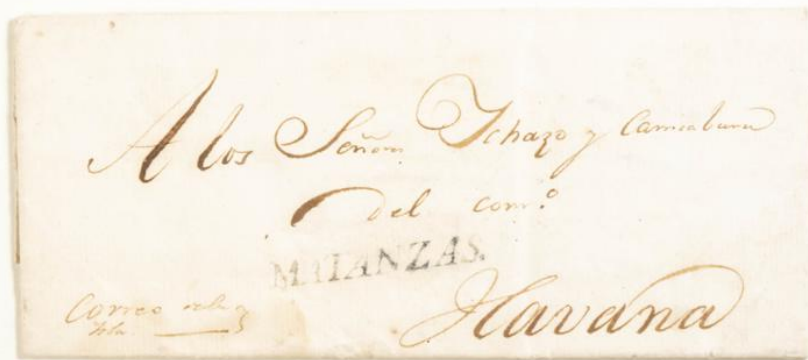 A los Señores Ichazo y
del com.º
MATANZAS.
Correo
Havana